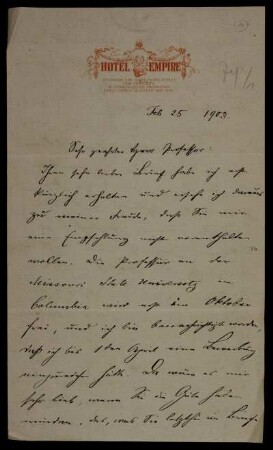 HOTEL EMPIRE
Feb 25 1903
Sehr geehrter Herr Professor:
Ihren sehr lieben Brief habe ich erst
kürzlich erhalten und ersehe ich daraus
zu meiner Freude, dass Sie mir
eine Empfehlung nicht vorenthalten
wollen. Die Professur an der
Missouri State University in
Columbia wird erst im Oktober
frei, und ich bin benachrichtigt worden,
dass ich bis 1 den April eine Bewerbung
einzureichen hätte. Da wäre es mir
sehr lieb, wenn Sie die Güte haben
würden, das, was Sie letzthin im